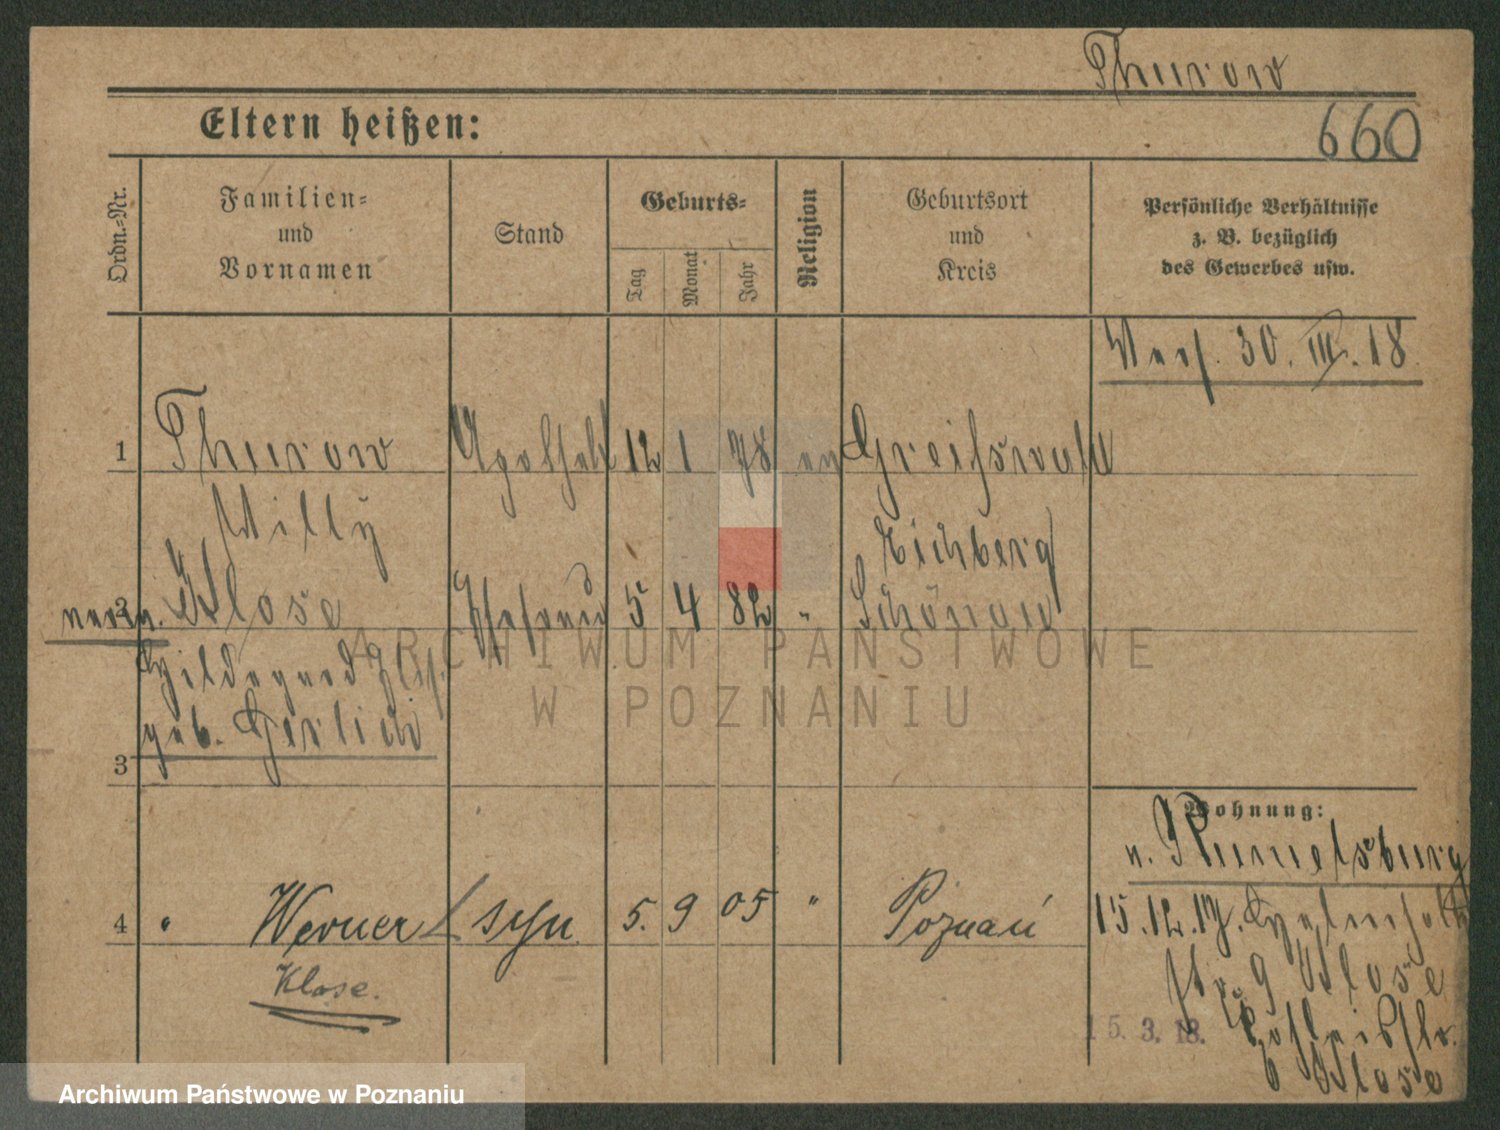 Thurow
Eltern heißen:
660
Ordn.-Nr.
Familien-
und
Vornamen
Stand
Geburts-
Tag
Monat
Jahr
Religion
Geburtsort
und
Kreis
Persönliche Verhältnisse
z. B. bezüglich
des Gewerbes usw.
30. III. 18
1 Thurow 12 1 78 ev Greifswald
Willy
Eichberg
2 Klose Ehefrau 5 4 82 " Schönau
verw.
Hildegard
geb. Gerlich
3
Wohnung:
v. Rumelsburg
4 " Werner syn 5. 9 05 " Poznań
15.12.17.
Klose.
str. 9 Klose
15. 3. 18.
Klose
ARCHIWUM PAŃSTWOWE
W POZNANIU
Archiwum Państwowe w Poznaniu